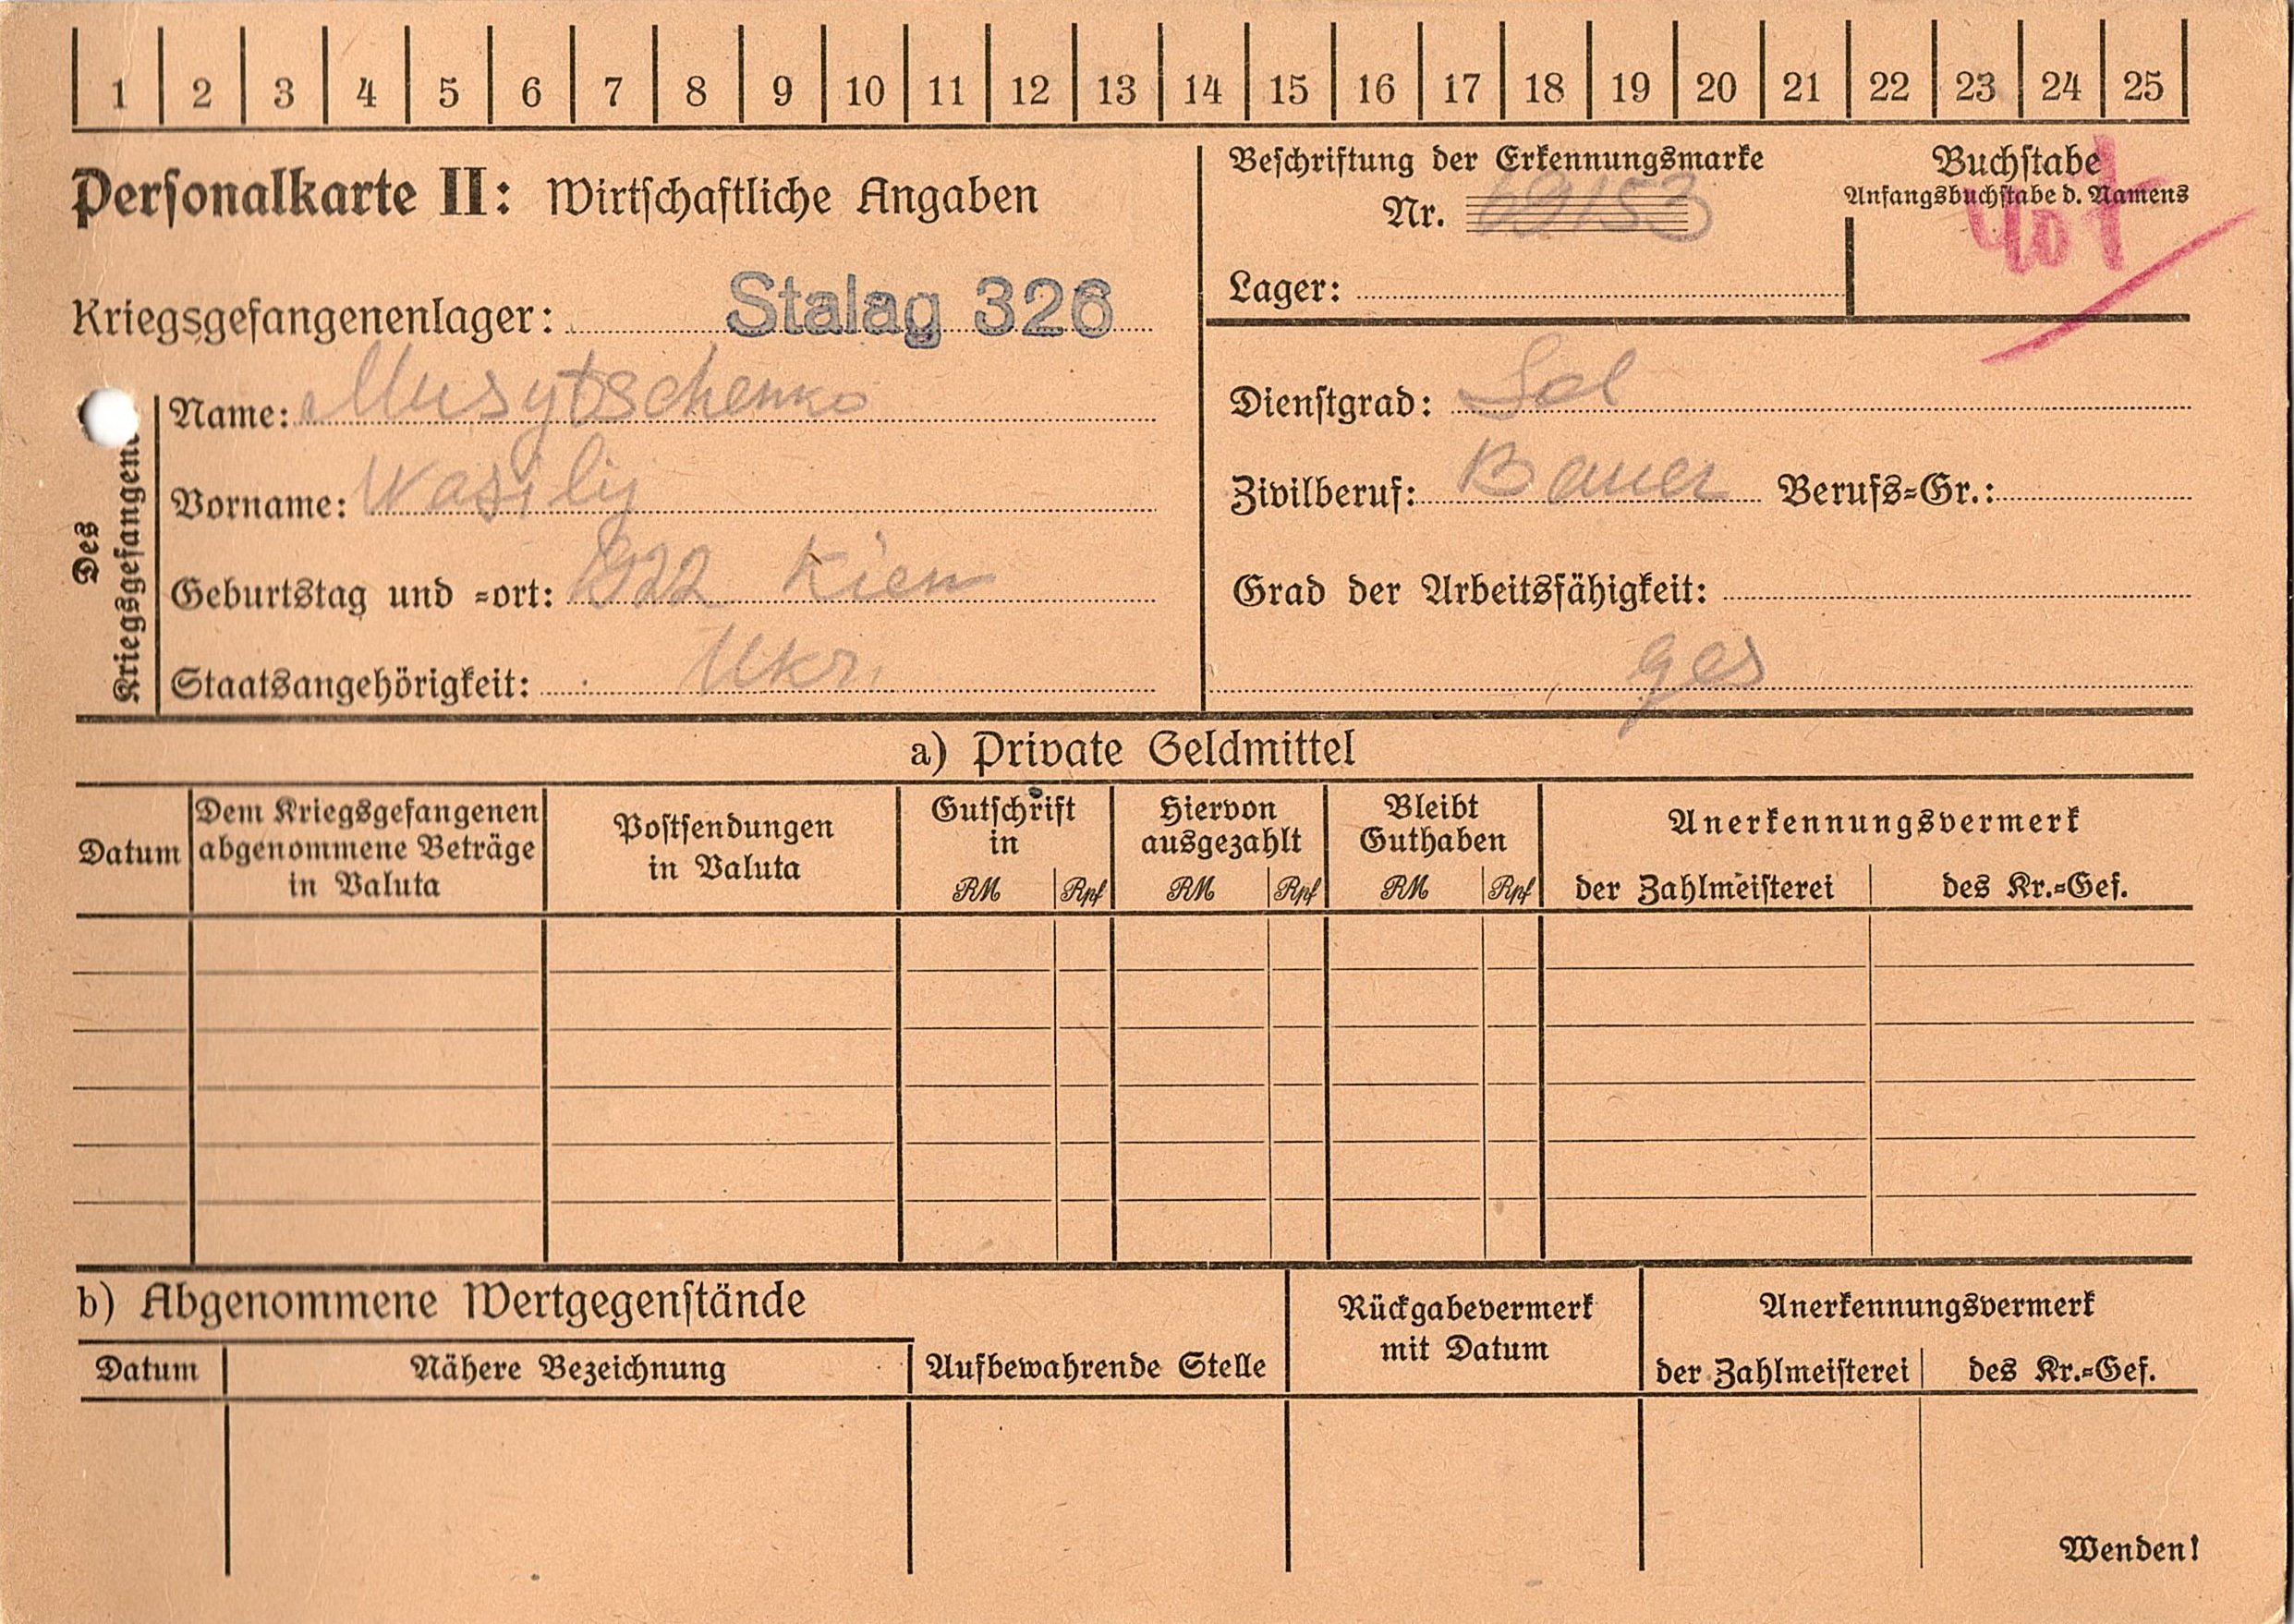 1 2 3 4 5 6 7 8 9 10 11 12 13 14 15 16 17 18 19 20 21 22 23 24 25
Personalkarte II: Wirtschaftliche Angaben
Beschriftung der Erkennungsmarke
Nr. 69153
Lager:
Buchstabe
Anfangsbuchstabe d. Namens
Kriegsgefangenenlager: Stalag 326
Des Kriegsgefangenen
Name: Musytschenko
Vorname: Wasilij
Geburtstag und =ort: 1922 Kiew
Staatsangehörigkeit: Ukr.
Dienstgrad: Sol
Zivilberuf: Bauer Berufs=Gr.:
Grad der Arbeitsfähigkeit:
ges
a) Private Geldmittel
Datum
Dem Kriegsgefangenen
abgenommene Beträge
in Valuta
Postsendungen
in Valuta
Gutschrift
in
RM Rpf
Hiervon
ausgezahlt
RM Rpf
Bleibt
Guthaben
RM Rpf
Anerkennungsvermerk
der Zahlmeisterei des Kr.=Gef.
b) Abgenommene Wertgegenstände
Datum Nähere Bezeichnung Aufbewahrende Stelle
Rückgabevermerk
mit Datum
Anerkennungsvermerk
der Zahlmeisterei des Kr.=Gef.
Wenden!